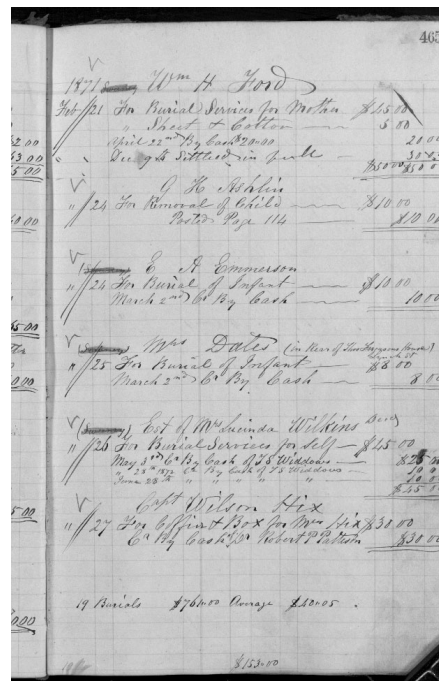 465
1871 Wm H Ford
Feb 21 For Burial Services for Mother $45.00
" Sheet & Cotton 5 00
April 22nd By Cash $20.00 20 00
" " Dec 9th Settled in full 30.00
$50 00 $50 00
G H Ashlin
" 24 For Removal of Child $10.00
Posted Page 114 $10.00
E A Emmerson
" 24 For Burial of Infant $10.00
March 2nd Cr By Cash 10 00
Mrs Date (in Rear of
" 25 For Burial of Infant $8 00
March 2nd Cr By Cash 8 00
Est of Mrs Lucinda Wilkins Decd
" 26 For Burial Services for Self $45.00
May 3rd Cr By Cash of T S Widdows $25
" 25th 1872 Cr By Cash of T S Widdows 10 0
June 28th " " " " 10 0
$45 0
Capt Wilson Hix
" 27 For Coffin & Box for Mrs Hix $30.00
Cr By Cash Robert P Patteson $30 00
19 Burials $761.00 Average $40.05
$153.00